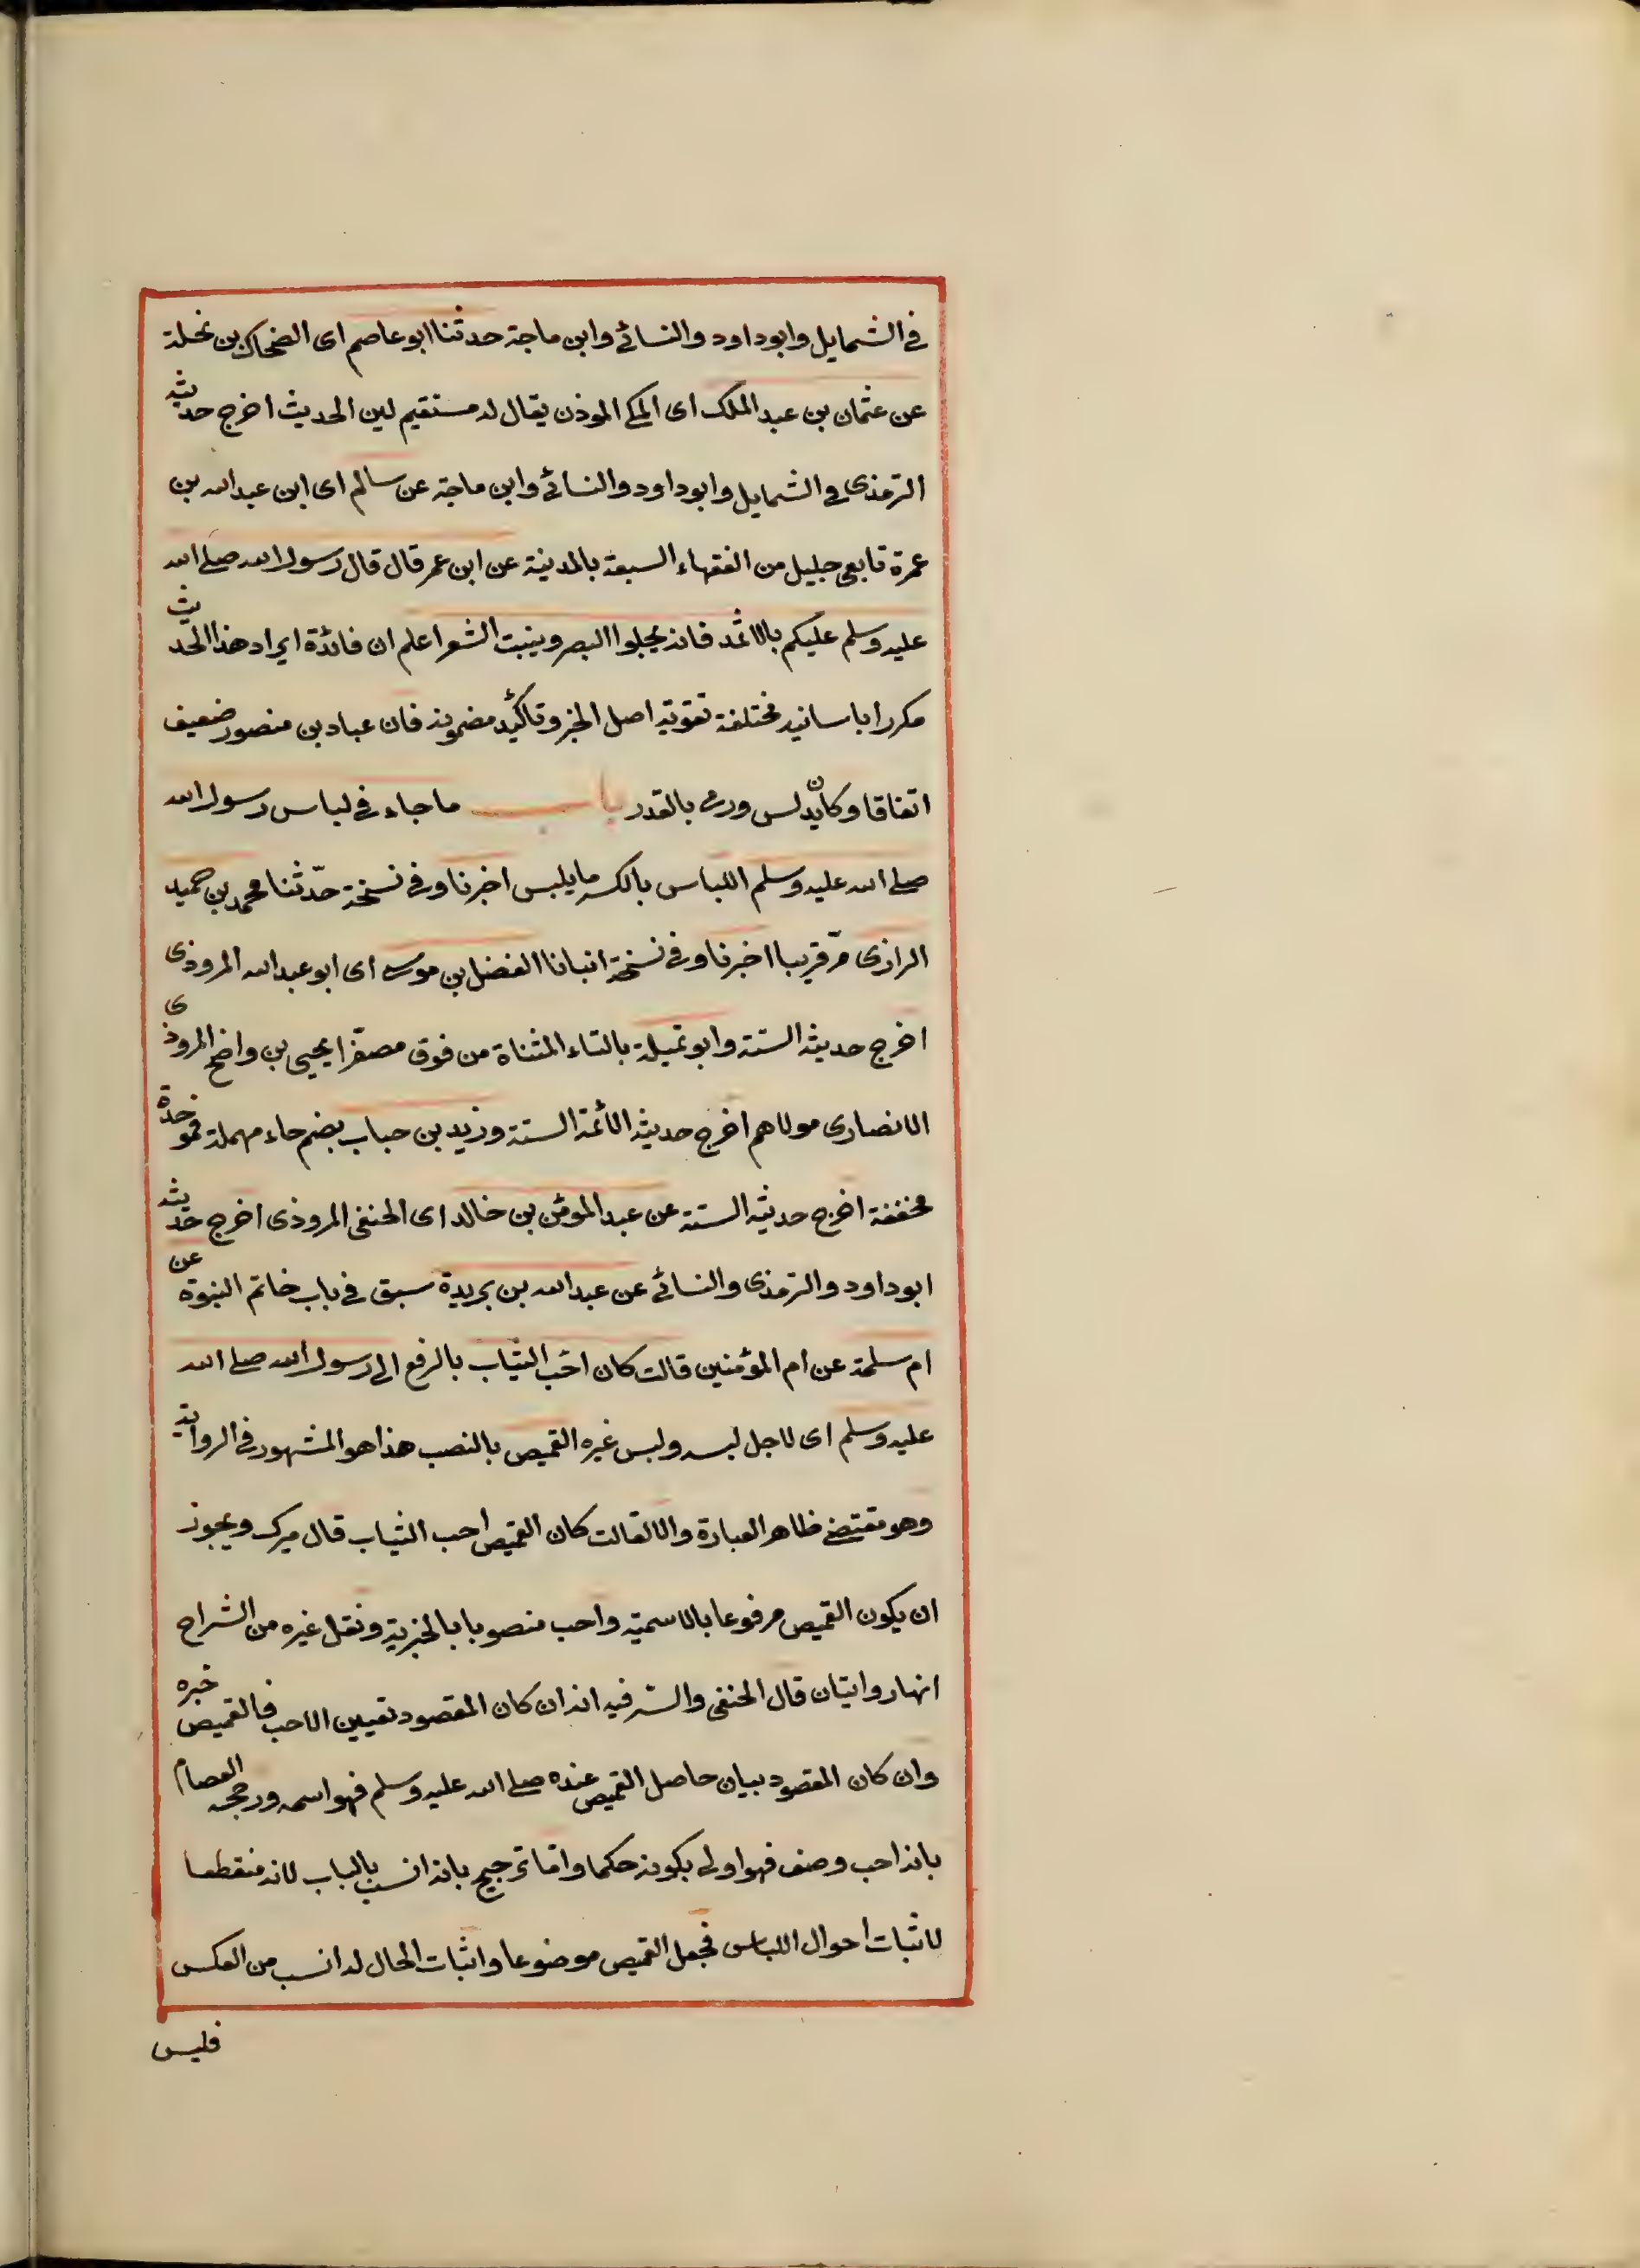 في الشمايل وابو داود والنسائي وابن ماجة حدثنا ابو عاصم اى الضحاك بن نخلة
عن عثمان بن عبد الملك اى المكي الموذن يقال له مستقيم لين الحديث اخرج حديثه
الترمذى في الشمايل وابو داود والنسائي وابن ماجة عن سالم اى ابن عبد الله بن
عمرة تابعي جليل من الفقهاء السبعة بالمدينة عن ابن عمر قال قال رسول الله صلى الله
عليه وسلم عليكم بالاثمد فانه يجلوا البصر وينبت الشعر اعلم ان فائدة ايراد هذا الحديث
مكررا باسانيد مختلفة تقوية اصل الخبر وتاكيد مضمونه فان عباد بن منصور ضعيف
اتفاقا وكان يدلس ورمى بالقدر باب ما جاء في لباس رسول الله
صلى الله عليه وسلم اللباس بالكسر ما يلبس اخبرنا وفي نسخة حدّثنا محمد بن حميد
الرازى مرّ قريبا اخبرنا وفي نسخة انبانا الفضل بن موسى اى ابو عبد الله المروذى
اخرج حديثه الستة وابو تميلة بالتاء المثناة من فوق مصغّرا يحيى بن واضح المروذى
الانصارى مولاهم اخرج حديثه الائمة الستة وزيد بن حباب بضم حاء مهملة فموحدة
مخففة اخرج حديثه الستة عن عبد المومن بن خالد اى الحنفي المروذى اخرج حديثه
ابو داود والترمذى والنسائي عن عبد الله بن بريدة سبق في باب خاتم النبوة عن
ام سلمة عن ام المؤمنين قالت كان احّب الثياب بالرفع الى رسول الله صلى الله
عليه وسلم اى لاجل لبسه ولبس غيره القميص بالنصب هذا هو المشهور في الرواية
وهو مقتضى ظاهر العبارة والا لقالت كان القميص احب الثياب قال ميرك ويجوز
ان يكون القميص مرفوعا بالاسمية واحب منصوبا بالخبرية ونقل غيره من الشراح
انهما روايتان قال الحنفي والسّر فيه انه ان كان المقصود تعيين الاحب فالقميص خبره
وان كان المقصود بيان حاصل القميص عنده صلى الله عليه وسلم فهو اسمه ورجحه العصام
بانه احب وصف فهو اولى بكونه حكما واما ترجيح بانه انسب بالباب لانه منقطعا
لاثبات احوال اللباس فجعل القميص موضوعا واثبات الحال له انسب من العكس
فليس